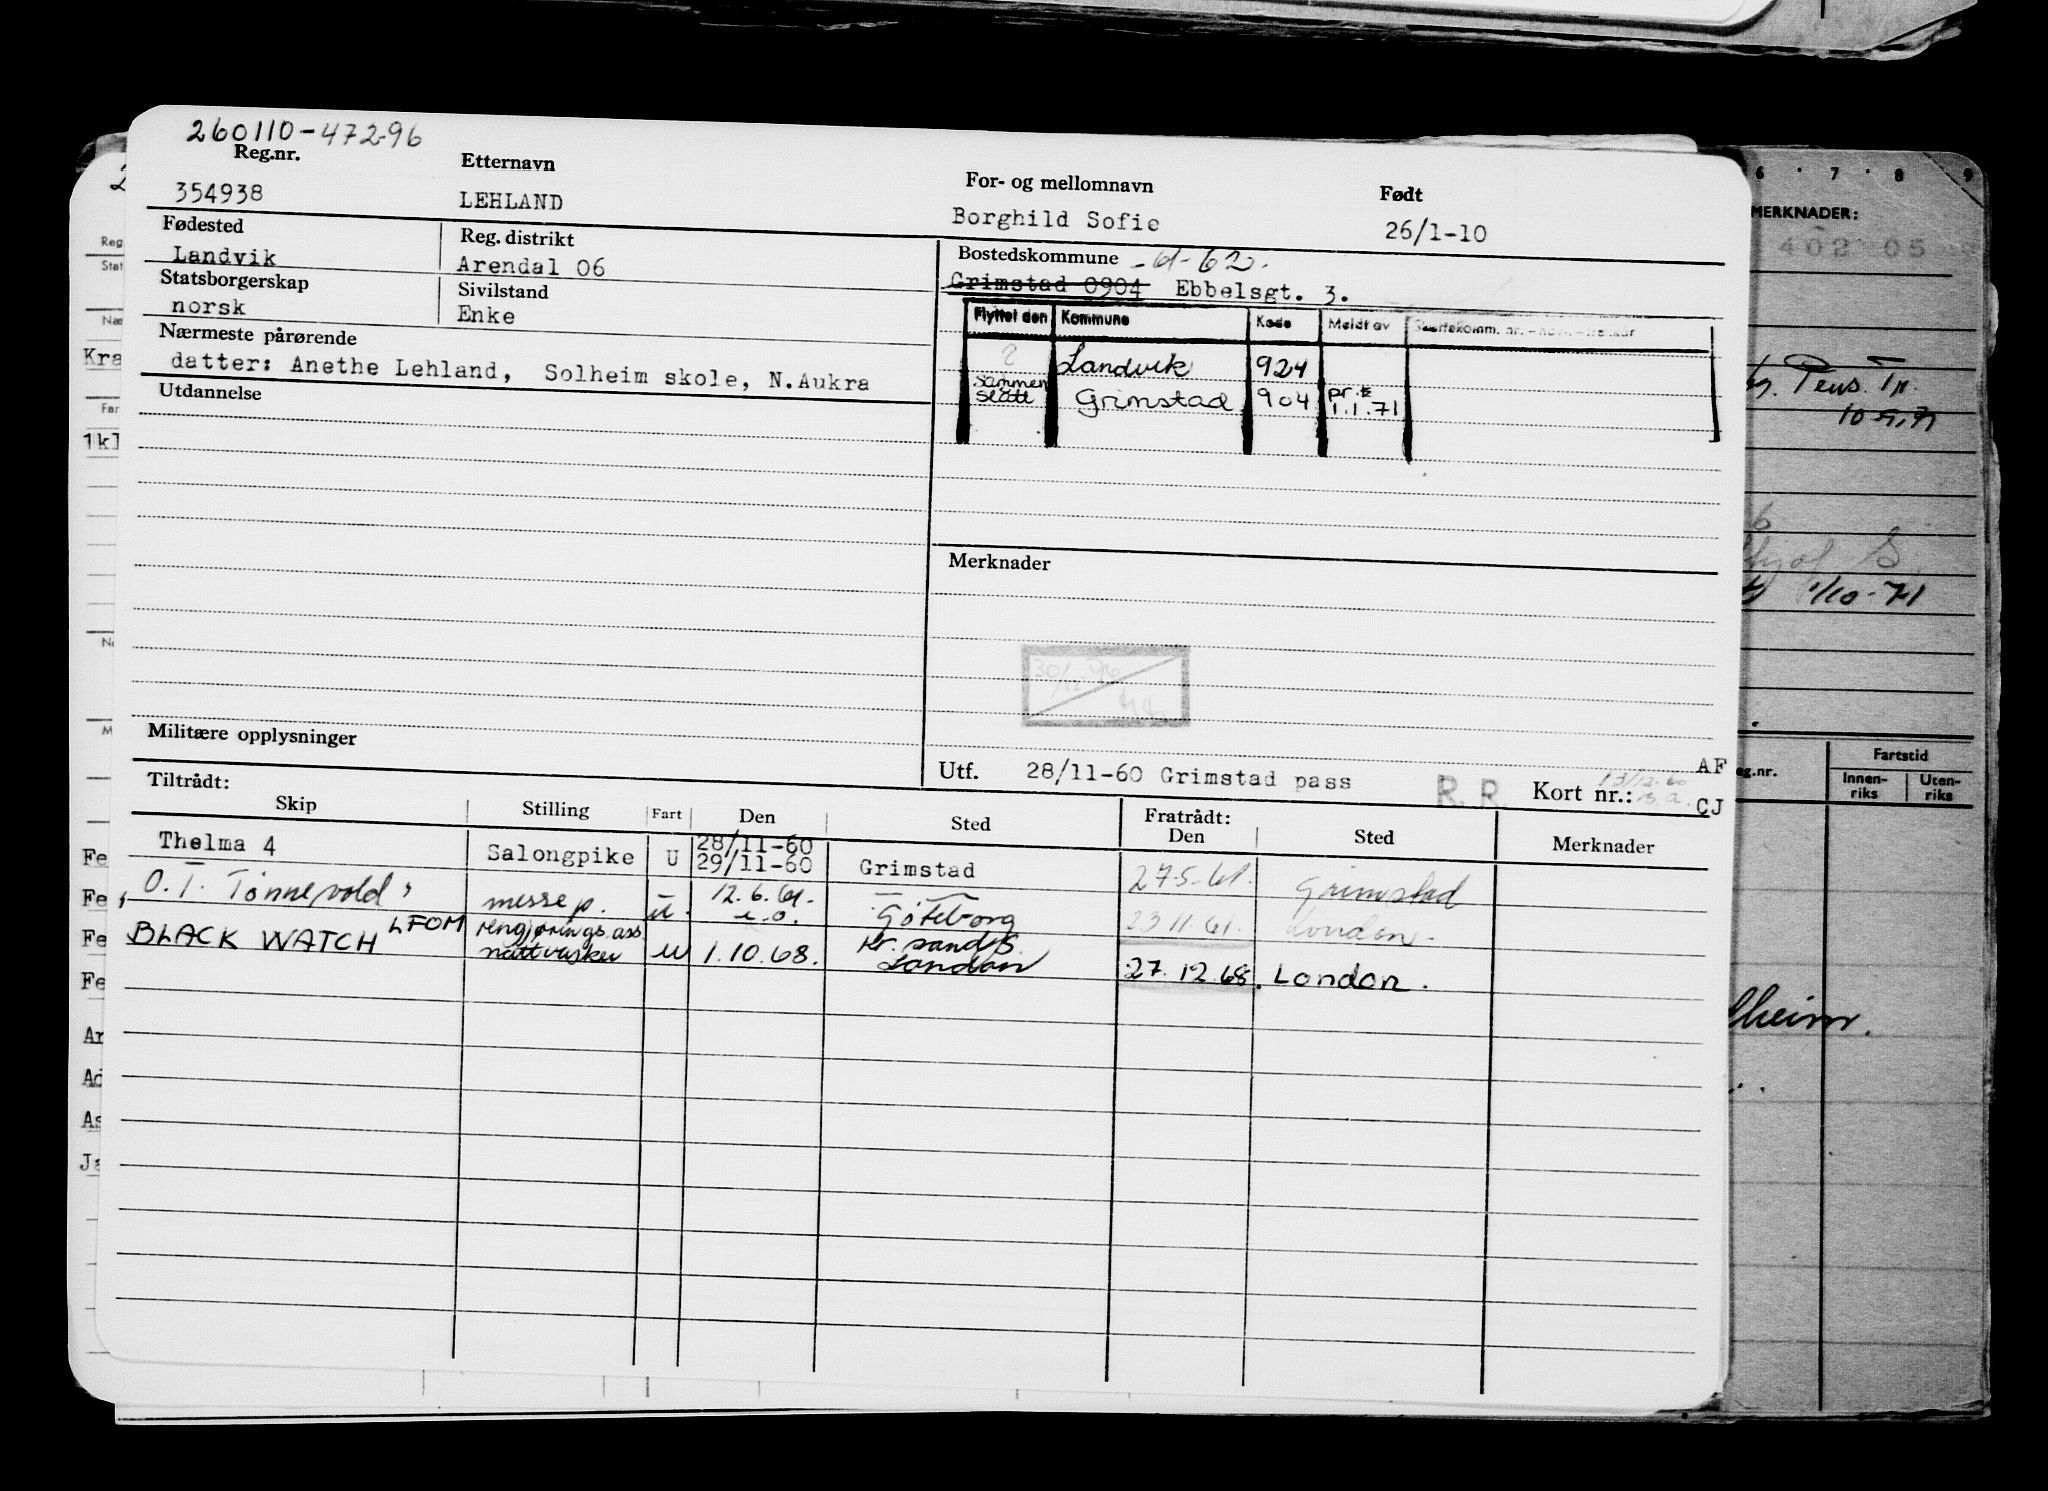 260110-47296
Reg.nr. Etternavn For- og mellomnavn Født
354938 LEHLAND Borghild Sofie 26/1-10
Fødested Reg. distrikt Bostedskommune
Landvik Arendal 06 Grimstad 0904 Ebbelsgt. 3.
Statsborgerskap Sivilstand
norsk Enke
Flyttet den Kommune Kode Meldt av
Landvik 924
sammen slått Grimstad 904 pr. 1.1.71
Nærmeste pårørende
datter: Anethe Lehland, Solheim skole, N.Aukra
Utdannelse
Merknader
Militære opplysninger
Utf. 28/11-60 Grimstad pass R.R. Kort nr.:
AF
CJ
Tiltrådt: Fratrådt:
Skip Stilling Fart Den Sted Den Sted Merknader
Thelma 4 Salongpike U 28/11-60 29/11-60 Grimstad 27.5.61. Grimstad
O.T. Tønnevold messep. u. 12.6.61. Göteborg 23.11.61. London.
BLACK WATCH LFOM rengjørings.ass. nattvasker u 1.10.68. Kr.sand S. London 27.12.68. London.
6 7 8 9
MERKNADER:
402 05
Pens. Tr.
1/10-71
Fartstid
eg.nr. Innen-riks Uten-riks
lheim.
Reg
Stat
Kra
Far
1kl
Fe
Fe
Fe
Fe
Ar
Ad
As
Ja